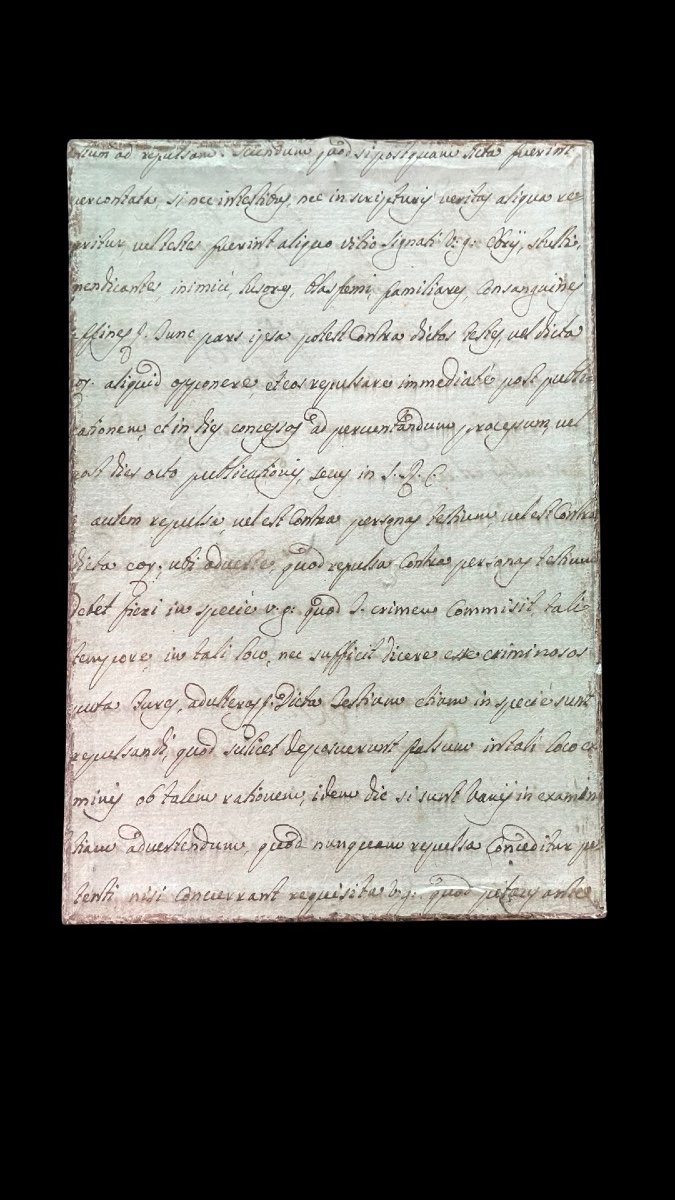 ntum ad repulsam. Sciendum quod si postquam dicta fuerint
percontata, si nec in testibus, nec in scripturis veritas aliqua re
peritur vel testes fuerint aliquo vitio signati v. g. Ebrij, stulti,
mendicantes, inimici, lusores, blasfemi, familiares, Consanguinej
affines Tunc pars ipsa potest Contra dictos testes, vel dicta
eor. aliquid opponere, et eos repulsare immediaté post publi
cationem, et in dies concessos ad percuntandum processum, vel
post dies octo publicationis, secus in S. R. C.
autem repulsa, vel est Contra personas testium, vel est Contra
dicta eor, ubi adverte, quod repulsa Contra personas testium
debet fieri in specié v. g. quod commisit crimen tali
tempore, in tali loco, nec sufficit dicere esse criminosos
puta fures, adulteros. Dicta Testium etiam in specié sunt
repulsandi, quod scilicet deposuerunt falsum in tali loco
minis ob talem rationem, idem dic si sunt varij in examin
etiam advertendum, quod nunquam repulsa Conceditur pe
tenti nisi Concurrant requisita v. g. quod petens ante